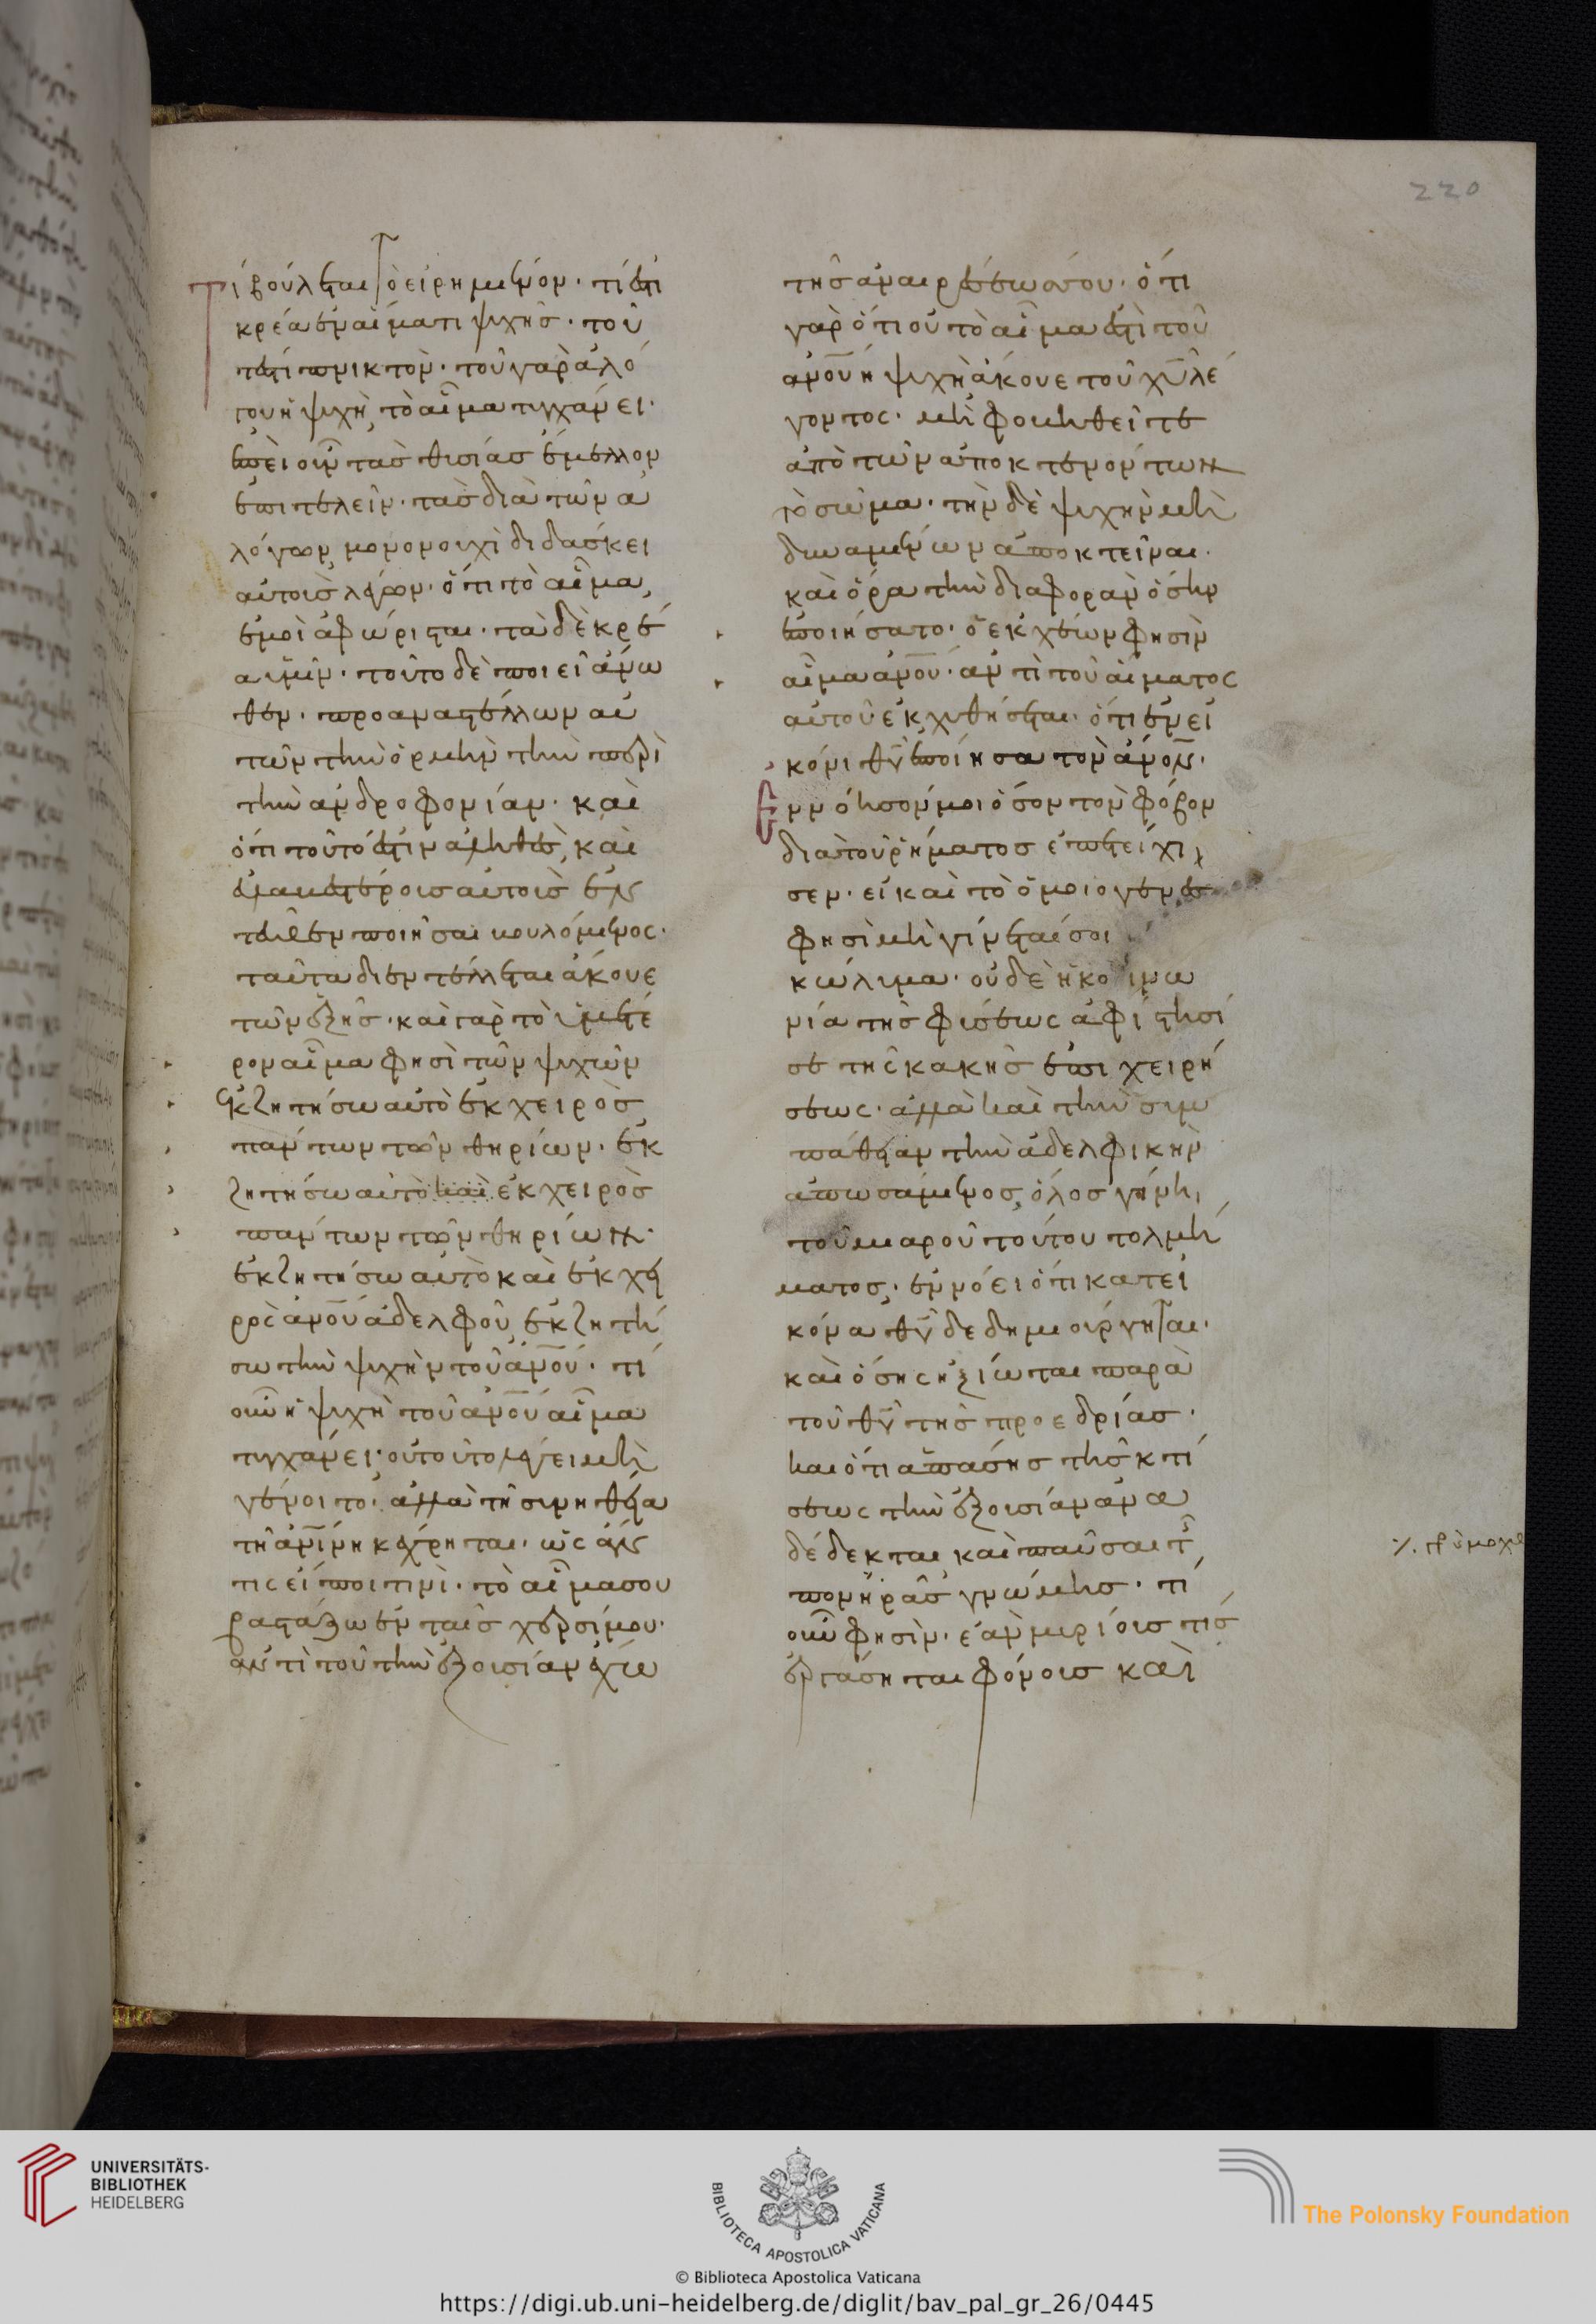 220
Τί βούλεται τὸ εἰρημένον· τί ἐστι
κρέας ἐν αἵματι ψυχῆς· του
τέστι πνικτὸν· τοῦ γὰρ ἀλό
γου ἡ ψυχὴ, τὸ αἷμα τυγχάνει·
ἐπεὶ οὖν τὰς θυσίας ἔμελλον
ἐπιτελεῖν· τὰς διὰ τῶν ἀ
λόγων, μονονουχὶ διδάσκει
αὐτοὺς λέγων· ὅτι τὸ αἷμα,
ἐμοὶ ἀφώρισται· τὰ δὲ κρέ
α ὑμῖν· τοῦτο δὲ ποιεῖ ἄνω
θεν· προαναστέλλων αὐ
τῶν τὴν ὁρμὴν τὴν περὶ
τὴν ἀνδροφονίαν· καὶ
ὅτι τοῦτό ἐστιν ἀληθὲς, καὶ
ἡμερωτέρους αὐτοὺς ἐν
ποιῆσαι βουλόμενος·
ταῦτα διεντέλλεται ἄκουε
τῶν ἑξῆς· καὶ γὰρ τὸ ὑμέτε
ρον αἷμα φησὶ τῶν ψυχῶν
ἐκζητήσω αὐτὸ ἐκ χειρὸς
πάντων τῶν θηρίων· ἐκ
ζητήσω αὐτὸ καὶ ἐκ χειρὸς
πάντων τῶν θηρίων·
ἐκζητήσω αὐτὸ καὶ ἐκ χει
ρὸς ἀνου ἀδελφοῦ, ἐκζητή
σω τὴν ψυχὴν τοῦ ἀνου· τί
οὖν ἡ ψυχὴ τοῦ ἀνου αἷμα
τυγχάνει· οὐ τοῦτο λέγει μὴ
γένοιτο· ἀλλὰ τῆ συνηθεία
τῆ ἀνίνη κέχρηται· ὡς ἄν
τις εἴποι τινὶ· τὸ αἷμα σου
βαστάζω ἐν ταῖς χερσί μου·
ἀντὶ τοῦ τὴν ἐξουσίαν ἔχω
τῆς ἀναιρέσεώς σου· ὅτι
γὰρ ὅτι οὐ τὸ αἷμα ἐστὶ τοῦ
ἀνου ἡ ψυχὴ ἄκουε τοῦ χυ λέ
γοντος· μὴ φοβηθεῖτε
ἀπὸ τῶν ἀποκτενόντων
τὸ σῶμα· τὴν δὲ ψυχὴν μὴ
δυναμένων ἀποκτεῖναι·
καὶ ὅρα τὴν διαφορὰν ὅσην
ἐποιήσατο· ὁ ἐκχέων φησὶν
αἷμα ἀνου· ἀντὶ τοῦ αἵματος
αὐτοῦ ἐκχυθήσεται· ὅτι ἐν εἰ
κόνι θυ ἐποίησα τὸν ἄνον·
Ἐννόησον μοι ὅσον τὸν φόβον
διὰ τοῦ ῥήματος ἐπετείχι
σεν· εἰ καὶ τὸ ὁμοιογενὲς
φησὶ μὴ γίνεταί σοι
κώλυμα· οὐδὲ ἡ κοινω
νία τῆς φύσεως ἀφίστησί
σε τῆς κακῆς ἐπιχειρή
σεως· ἀλλὰ καὶ τὴν συμ
πάθειαν τὴν ἀδελφικὴν
ἀπωσάμενος, ὅλος γένη,
τοῦ μιαροῦ τούτου τολμή
ματος, ἐννόει ὅτι κατ εἰ
κόνα θυ δεδημιούργηται·
καὶ ὅσης ἠξίωται παρὰ
τοῦ θυ τῆς προεδρίας·
καὶ ὅτι ἁπάσης τῆς κτί
σεως τὴν ἐξουσίαν ἀνα
δέδεκται καὶ παῦσαι τῆς
πονηρᾶς γνώμης· τί
οὖν φησὶν· ἐὰν μυρίοις τις
ἐργάσηται φόνοις καὶ
UNIVERSITÄTS-
BIBLIOTHEK
HEIDELBERG
BIBLIOTECA APOSTOLICA VATICANA
The Polonsky Foundation
© Biblioteca Apostolica Vaticana
https://digi.ub.uni-heidelberg.de/diglit/bav_pal_gr_26/0445